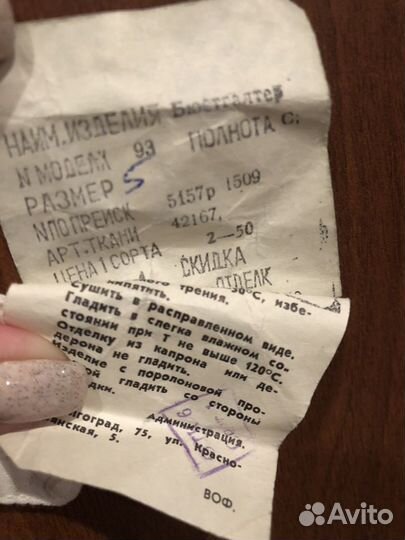 НАИМ.ИЗДЕЛИЯ Бюстгалтер
N МОДЕЛИ 93 ПОЛНОТА С;
РАЗМЕР 5
NПО ПРЕЙСК 5157р 1509
АРТ.ТКАНИ 42167,
ЦЕНА 1 СОРТА 2-50
СКИДКА
ОТДЕЛК
кипятить.
трения. 30°С, избе-
Сушить в расправленном виде.
Гладить в слегка влажном со-
стоянии при Т не выше 120°С.
Отделку из капрона или де-
дерона не гладить.
Изделие с поролоновой про-
кой гладить со стороны
дки.
Администрация.
лгоград, 75, ул. Красно-
анская, 5.
ВОФ.
Avito